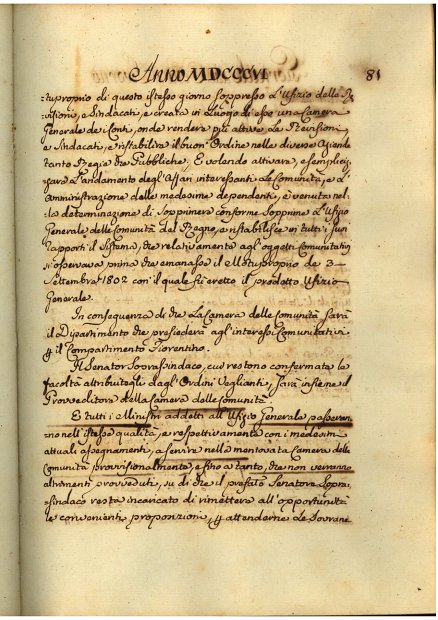 Anno MDCCCVI 81
tuproprio di questo istesso giorno soppresso l'Ufizio delle Re-
visioni, e Sindacati, e creata in Luogo di esso una Camera
Generale de Conti, onde rendere più attive le Revisioni,
e Sindacati, e ristabilire il buon'Ordine nelle diverse Aziende
tanto Regie che Pubbliche. E volendo attivare, e semplicis-
sare l'andamento degl'Affari interessanti le Comunità, e l'
amministrazione delle medesime dependenti, è venuta nel-
la determinazione di Sopprimere conforme Sopprime l'Ufizio
Generale delle Comunità del Regno, e ristabilisce in tutti i suoi
rapporti il Sistema, che relativamente agl'oggetti Comunitativi
si osservava prima che emanasse il Motuproprio de 3
Settembre 1802 con il quale fù eretto il predotto Ufizio
Generale.
In conseguenza di che La Camera delle Comunità sarà
il Dipartimento che presiederà agl'interessi Comunitativi
p il Compartimento Fiorentino.
Il Senator Soprassindaco, cui restono confermate le
facoltà attributegli dagl'Ordini Veglianti, sarà insieme il
Provveditore della Camera delle Comunità.
E tutti i Ministri addetti all'Ufizio Generale passeran-
no nell'istessa qualità, e respettivamente con i medesimi
attuali assegnamenti, a servire nella mentovata Camera delle
Comunità provvisionalmente, e fino a tanto, che non verranno
altrimenti provveduti, su di che il prefato Senatore Sopra-
sindaco resta incaricato di rimettere all'opportunità
le convenienti proposizioni, p attenderne le Sovrane